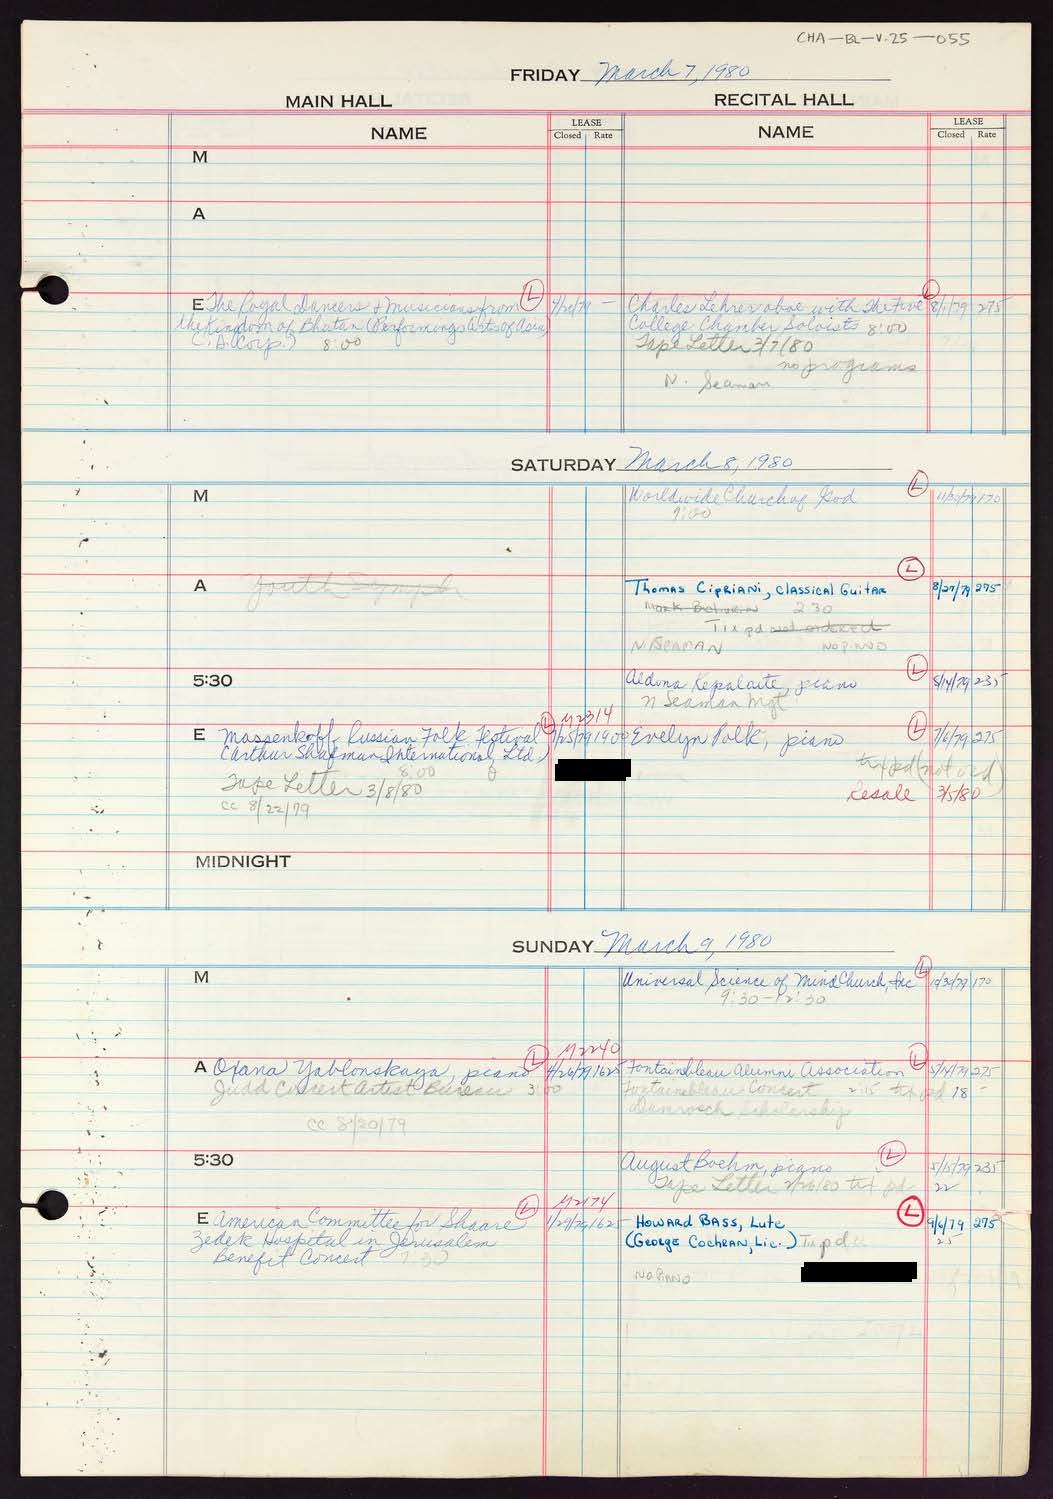 CHA-BL-V.25-055
FRIDAY March 7, 1980
MAIN HALL
RECITAL HALL
NAME
LEASE
Closed Rate
NAME
LEASE
Closed Rate
M
A
E The Royal Dancers & Musicians from (L) - Charles Lehrer oboe with The Five (L) 8/1/79 275
the Kingdom of Bhutan (Performing Arts of Asia, College Chamber Soloists 8:00
8:00 Tape Letter 3/7/80
no programs
N. Seaman
SATURDAY March 8, 1980
M Worldwide Church of God (L) 170
9:00
A Youth Symph (L)
Thomas Cipriani, classical Guitar 8/27/79 275
2 30
Tix pd not ordered
N. SEAMAN NO PIANO
5:30 Aldona Kepalaite, piano (L) 5/14/79 235
N Seaman Mgt
M2314
E Massenkoff Russian Folk Festival (L) 1900 Evelyn Polk, piano (L) 7/6/79 275
(Arthur Shafman International, Ltd.) tix pd (not ord)
8:00
Tape Letter 3/8/80 Resale 3/5/80
cc 8/22/79
MIDNIGHT
SUNDAY March 9, 1980
M Universal Science of Mind Church, Inc (L) 170
9:30-12:30
M2240
A Oxana Yablonskaya, piano (L) 4/26/79 1625 Fontainbleau Alumni Association (L) 5/14/79 275
Judd Concert Artist Bureau 3:00 Fontainbleau Concert 2:15 tix pd 18-
Damrosch Scholarship
cc 8/20/79
5:30 August Boehm, piano (L) 5/15/79 235
Tape Letter 2/26/80 tix pd 22
M2174
E American Committee for Shaare (L) 1625 HOWARD BASS, Lute (L) 9/6/79 275
Zedek Hospital in Jerusalem (GEORGE COCHRAN, Lic.) Tix pd 25
Benefit Concert 7:30
NO PIANO